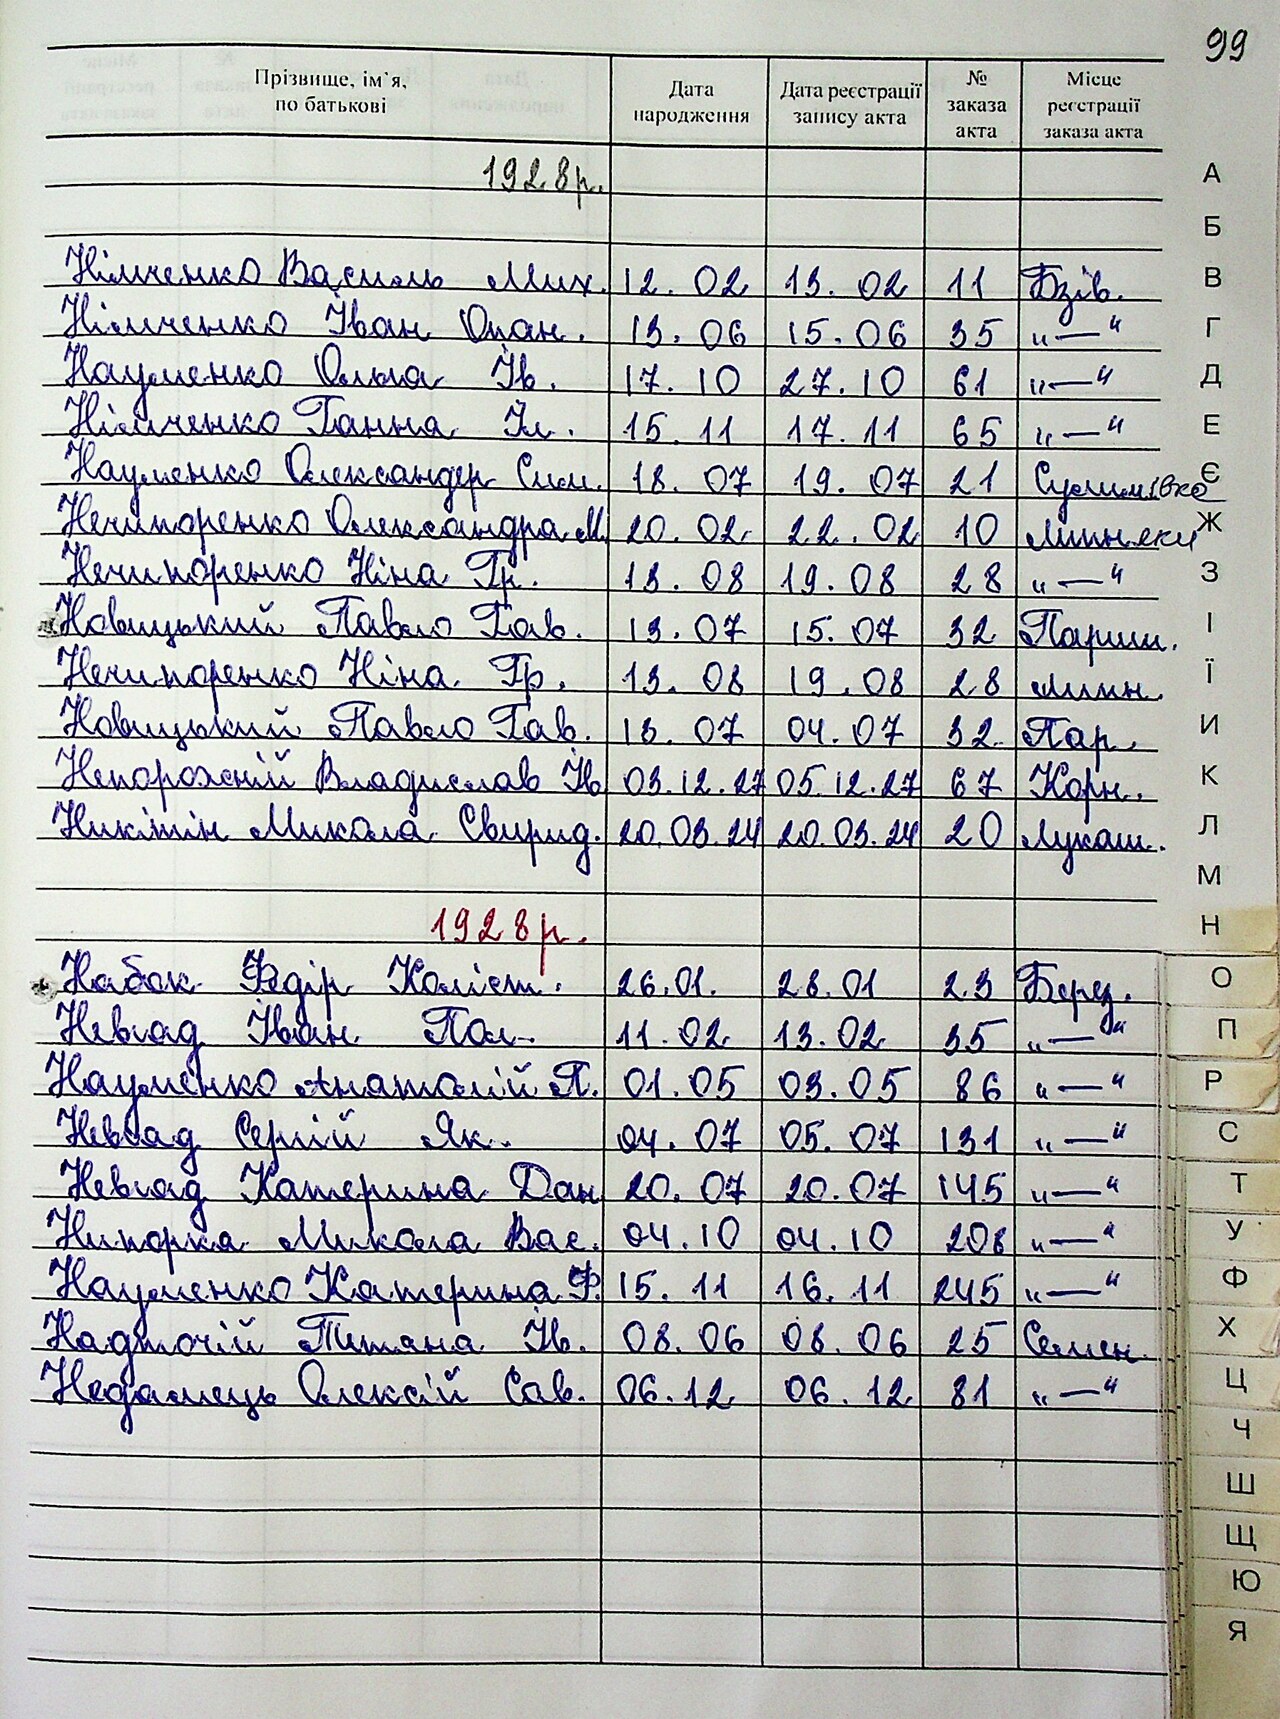 99
Прізвище, ім'я, по батькові | Дата народження | Дата реєстрації запису акта | № заказа акта | Місце реєстрації заказа акта
1928р.
Німченко Василь Мих. 12.02 13.02 11 Бзів.
Німченко Іван Опан. 13.06 15.06 35 „—"
Науменко Ольга Ів. 17.10 27.10 61 „—"
Німченко Ганна Іл. 15.11 17.11 65 „—"
Науменко Олександер Сим. 18.07 19.07 21 Сулимівка
Нечипоренко Олександра М. 20.02 22.02 10 Мирияки
Нечипоренко Ніна Гр. 13.08 19.08 28 „—"
Новицький Павло Гав. 13.07 15.07 32 Париш.
Нечипоренко Ніна Гр. 13.08 19.08 28
Новицький Павло Гав. 13.07 04.07 32 Пар.
Непорожній Владислав Ів. 03.12.27 05.12.27 67 Корн.
Никітін Микола Свирид. 20.03.24 20.03.24 20 Лукаш.
1928р.
Набок Федір Колист. 26.01. 28.01 23 Берез.
Невгад Іван Пол. 11.02 13.02 35 „—"
Науменко Анатолій П. 01.05 03.05 86 „—"
Невгад Сергій Як. 04.07 05.07 131 „—"
Невгад Катерина Дан 20.07 20.07 145 „—"
Нипорка Микола Вас. 04.10 04.10 208 „—"
Науменко Катерина Ф. 15.11 16.11 245 „—"
Надточій Тетяна Ів. 08.06 08.06 25 Семен.
Недамець Олексій Сав. 06.12 06.12 81 „—"
А
Б
В
Г
Д
Е
Є
Ж
З
І
Ї
И
К
Л
М
Н
О
П
Р
С
Т
У
Ф
Х
Ц
Ч
Ш
Щ
Ю
Я